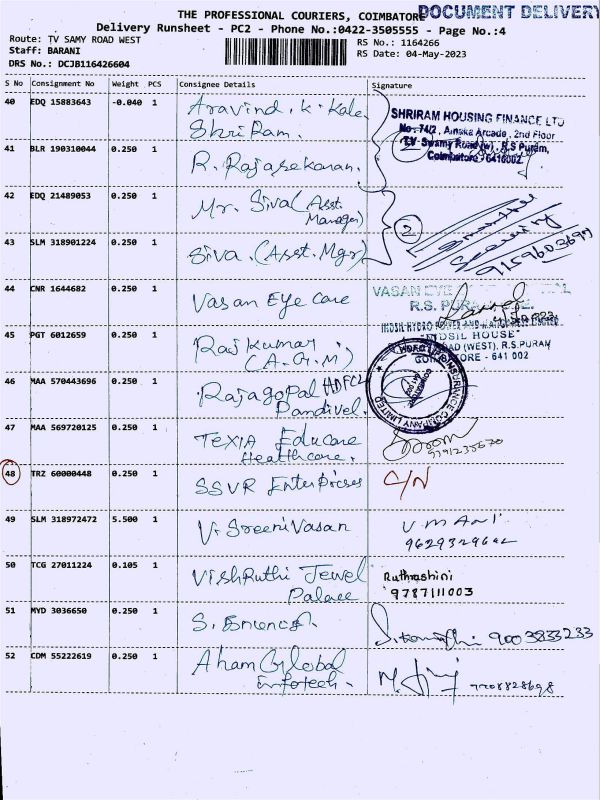 THE PROFESSIONAL COURIERS, COIMBATORE
DOCUMENT DELIVERY
Delivery Runsheet - PC2 - Phone No.:0422-3505555 - Page No.:4
Route: TV SAMY ROAD WEST
RS No.: 1164266
Staff: BARANI
RS Date: 04-May-2023
DRS No.: DCJB116426604
S No Consignment No Weight PCS Consignee Details Signature
40 EDQ 15883643 -0.040 1 Aravind. K. Kale
ShriRam.
SHRIRAM HOUSING FINANCE LTD
No. 74/2, Amska Arcade, 2nd Floor
T.V. Swamy Road (w), R.S Puram,
Coimbatore - 641002
41 BLR 190310044 0.250 1 R. Rajasekaran.
42 EDQ 21489053 0.250 1 Mr. Siva (Asst.
Manager)
2
43 SLM 318901224 0.250 1 Siva. (Asst. Mgr)
Security
9159603697
44 CNR 1644682 0.250 1 Vasan Eye Care
VASAN EYE
R.S. PURA
45 PGT 6012659 0.250 1 Raj Kumar.
(A.G.M)
INDSIL HYDRO POWER AND
"INDSIL HOUSE"
ROAD (WEST), R.S.PURAM
COIMBATORE - 641 002
46 MAA 570443696 0.250 1 Rajagopal HDFC
Pandivel.
INSURANCE COMPANY LIMITED
47 MAA 569720125 0.250 1 TEXIA Educare
Healthcare.
48 TRZ 60000448 0.250 1 SSVR Enterprises C/N
49 SLM 318972472 5.500 1 V. SreeniVasan UMANI
50 TCG 27011224 0.105 1 VishRuthi Jewel
Palace
Ruthashini
9787111003
51 MYD 3036650 0.250 1 S. 9003833233
52 CDM 55222619 0.250 1 Aham Global
Infotech.
7708828698